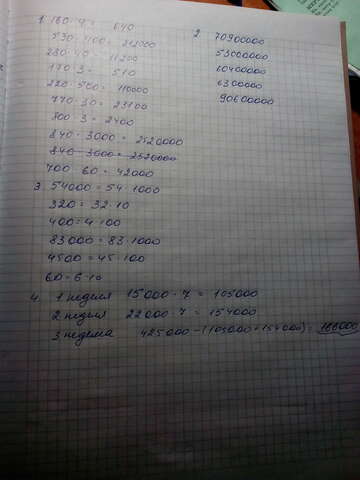 1. 160·4 = 640
530·400 = 212000
280·40 = 11200
170·3 = 510
220·500 = 110000
770·30 = 23100
800·3 = 2400
840·3000 = 2520000
840·3000 = 2520000
700·60 = 42000
2. 70900000
53000000
60400000
6300000
90600000
3. 54000 = 54·1000
320 = 32·10
400 = 4·100
83000 = 83·1000
4500 = 45·100
60 = 6·10
4. 1 неделя 15000·7 = 105000
2 неделя 22000·7 = 154000
3 неделя 425000-(105000+154000) = 166000